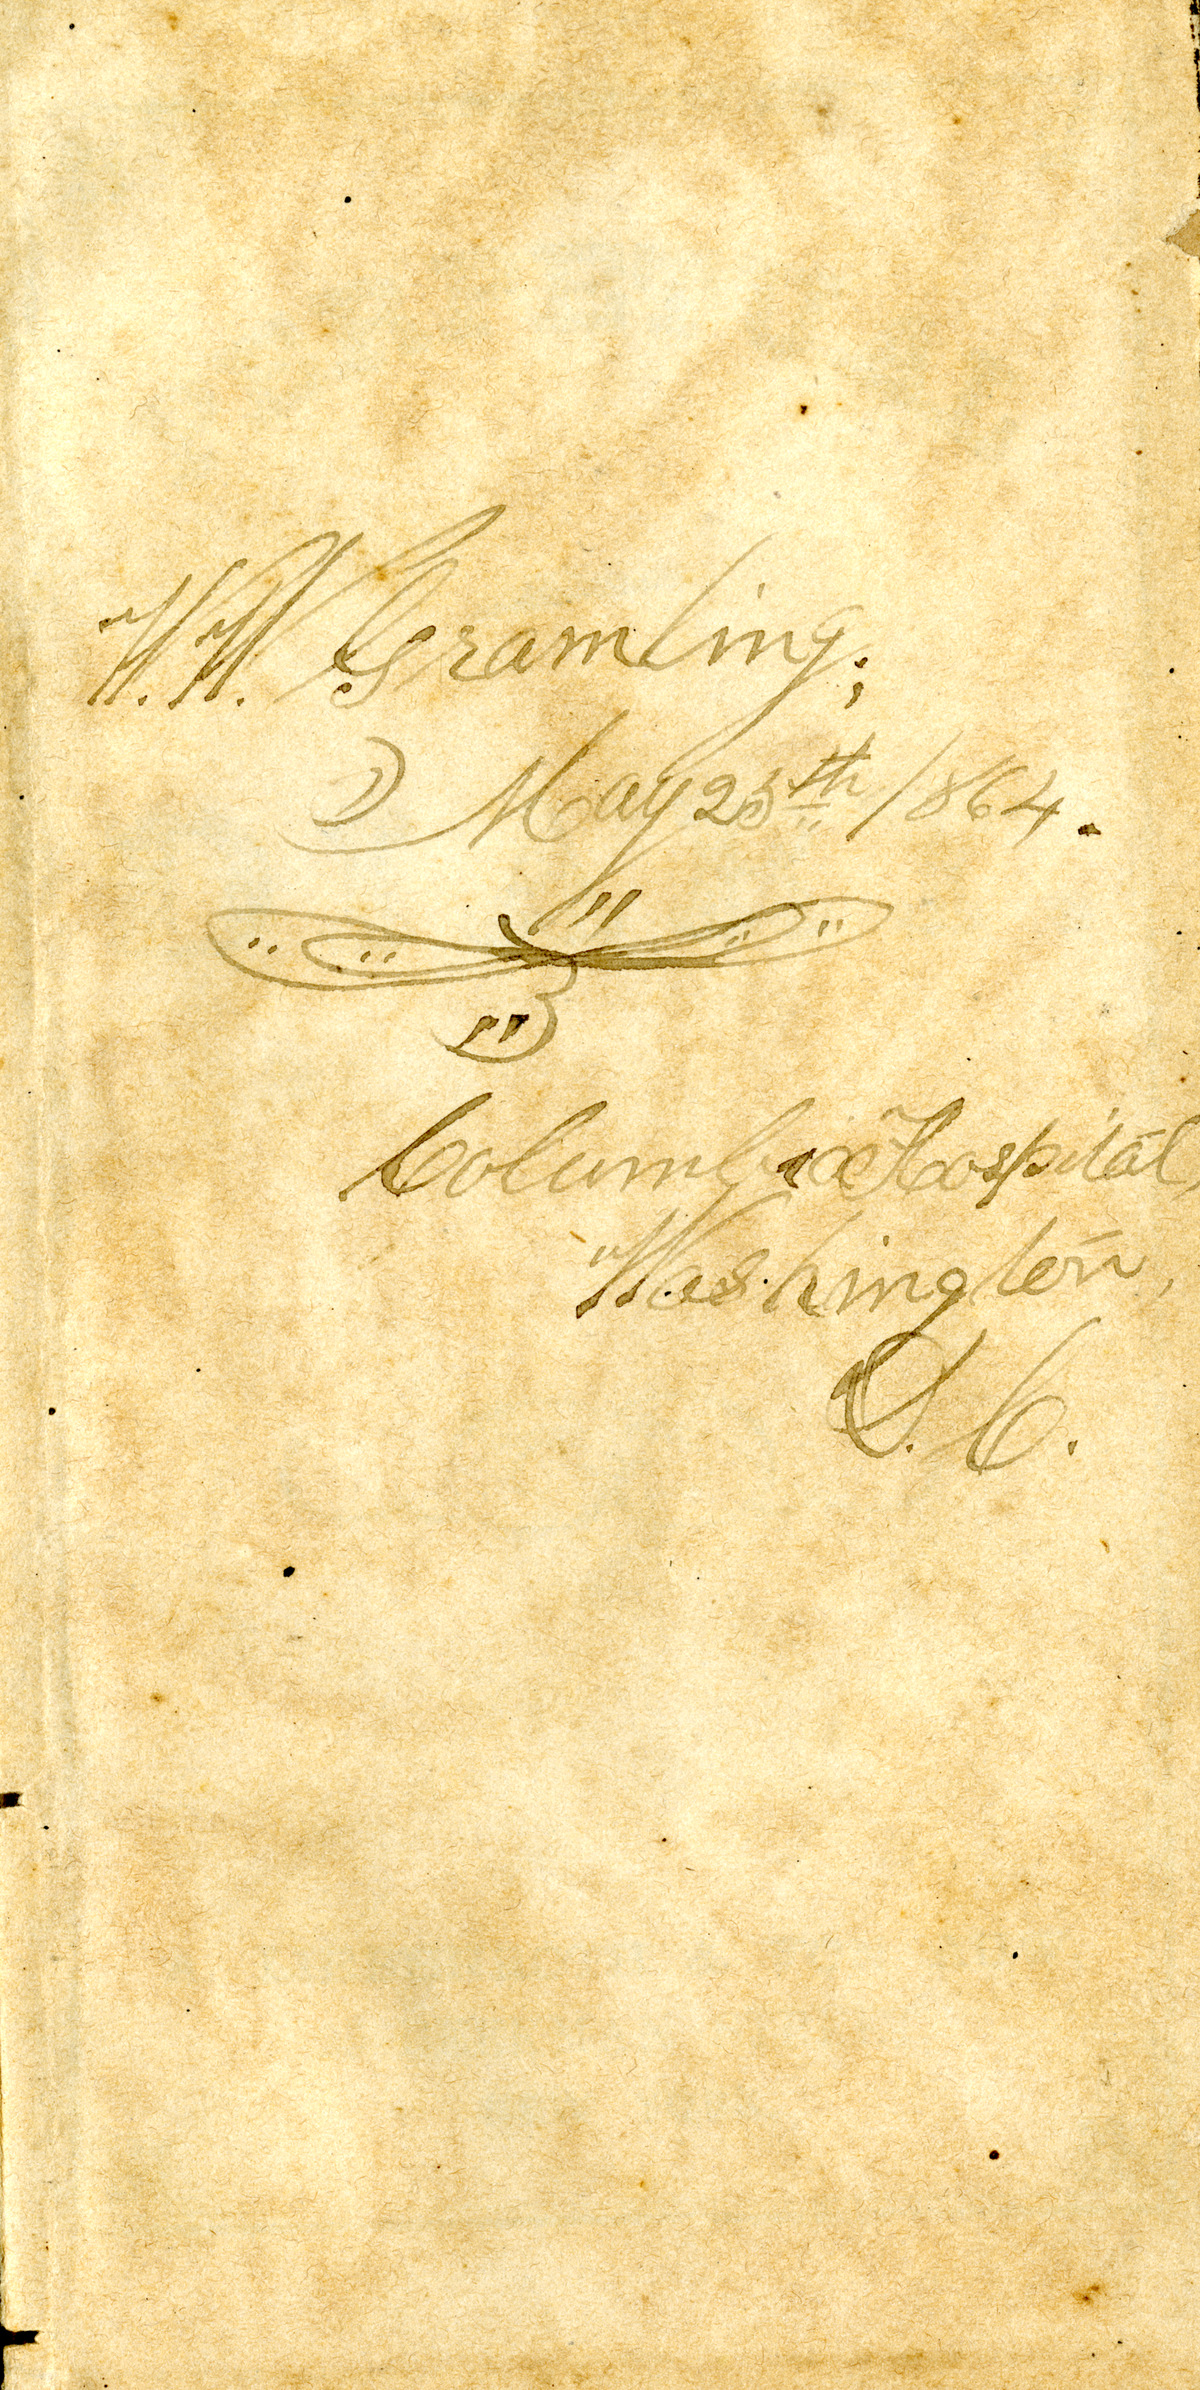 W. W. Gramling;
May 25th 1864.
Columbia Hospital,
Washington,
D. C.